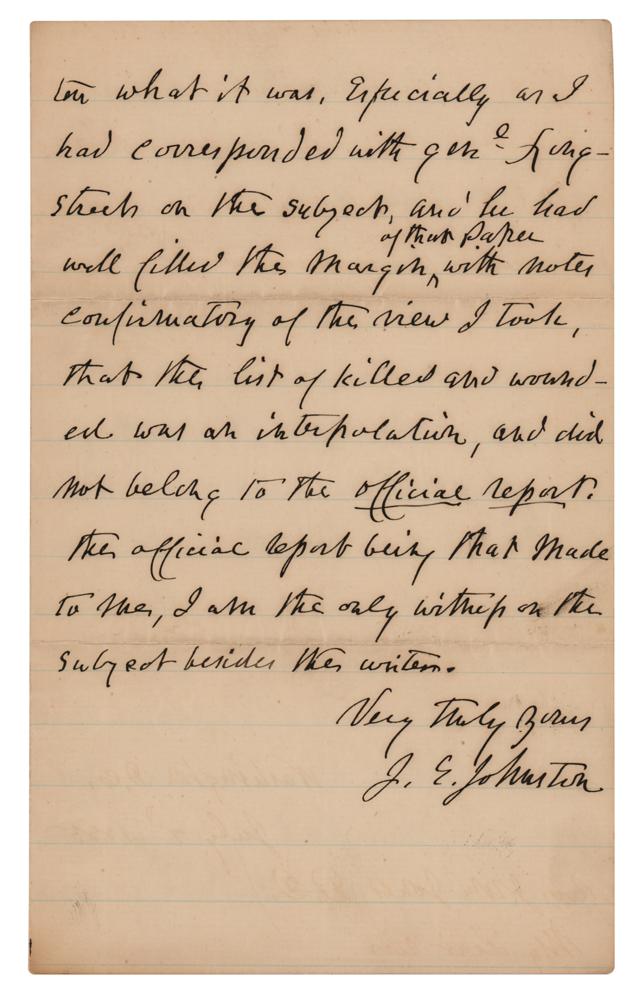 ten what it was. Especially as I
had corresponded with genl Long-
street on the subject, and he had
of that paper
well filled the margin, with notes
confirmatory of the view I took,
that the list of killed and wound-
ed was an interpolation, and did
not belong to the official report.
the official report being that made
to me, I am the only witness on the
subject besides the writer.
Very truly yours
J. E. Johnston